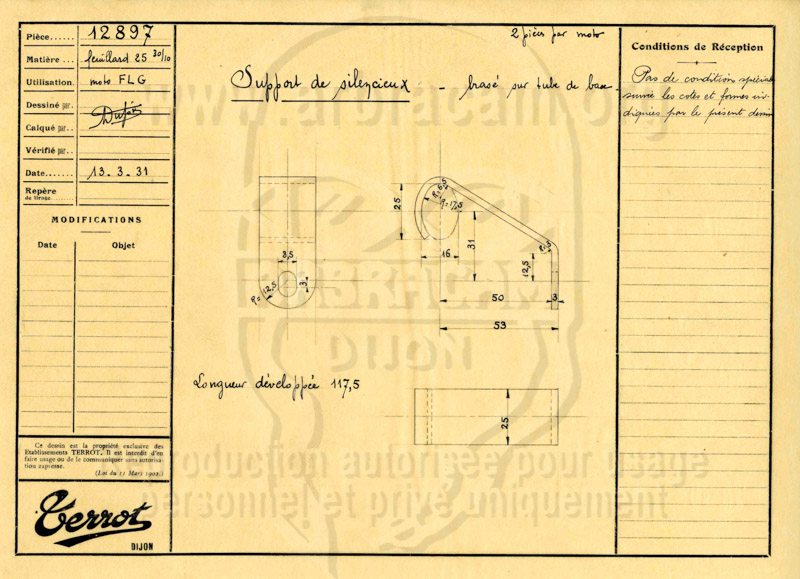 Pièce...... 12897
Matière... feuillard 25 30/10
Utilisation. moto FLG
Dessiné par.
Calqué par..
Vérifié par..
Date....... 13.3.31
Repère
de tirage.........
MODIFICATIONS
Date Objet
Ce dessin est la propriété exclusive des
Etablissements TERROT. Il est interdit d'en
faire usage ou de le communiquer sans autorisa-
tion expresse.
(Loi du 11 Mars 1902.)
Terrot
DIJON
2 pièces par moto
Support de silencieux - brasé sur tube de base
8,5
R=12,5
3
25
R=6,5
R=17,5
16
31
12,5
R=5
50
3
53
Longueur développée 117,5
25
Conditions de Réception
Pas de condition spéciale
suivre les cotes et formes in-
diquées par le présent dessin
ABRACAM
DIJON
reproduction autorisée pour usage
personnel et privé uniquement